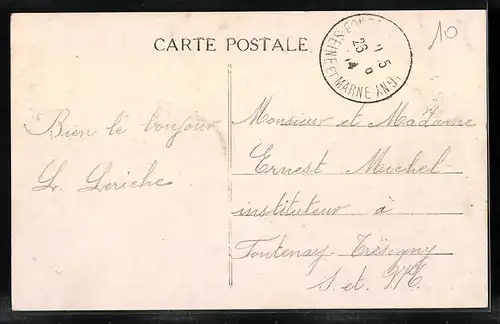 CARTE POSTALE
10
SEINE ET MARNE
Bien le bonjour
L. Leriche
Monsieur et Madame
Ernest Michel
instituteur à
Fontenay-Trésigny
S. et M.